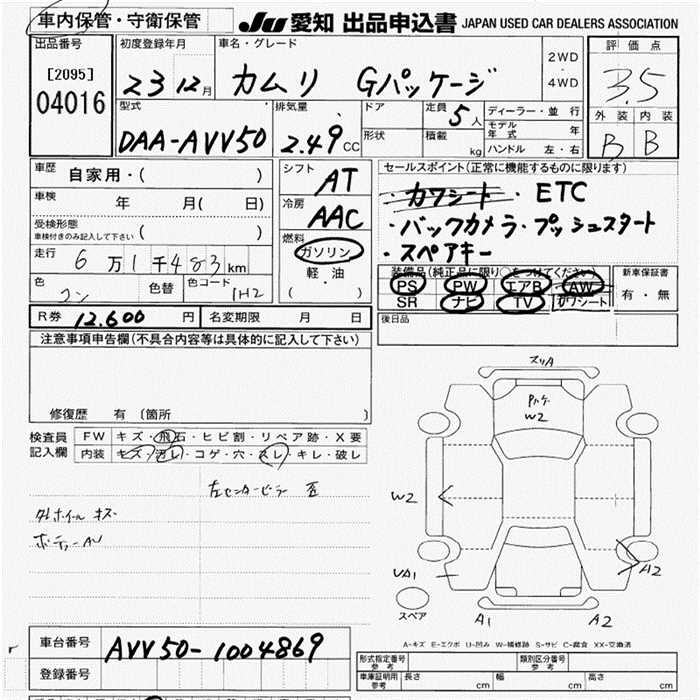 車内保管・守衛保管
JU 愛知 出品申込書 JAPAN USED CAR DEALERS ASSOCIATION
出品番号 [2095] 04016
初度登録年月 23 12月
車名・グレード カムリ Gパッケージ
2WD ・ 4WD
評価点 3.5
外装 B 内装 B
型式 DAA-AVV50
排気量 2.49 CC
ドア 形状
定員 5人 積載 kg
ディーラー・並行
モデル年式 年
ハンドル 左・右
車歴 自家用・( )
車検 年 月( 日)
受検形態 車検付きのみ記入して下さい ( )
走行 6万1千483km
色 コン 色替 色コード 1H2
シフト AT
冷房 AAC
燃料 ガソリン・軽油 ( )
セールスポイント(正常に機能するものに限ります)
・カワシート ・ETC
・バックカメラ・プッシュスタート
・スペアキー
装備品(純正品に限り○をつけてください)
PS PW エアB AW
SR ナビ TV カワシート
新車保証書 有・無
後日品
R券 12,600 円 名変期限 月 日
注意事項申告欄(不具合内容等は具体的に記入して下さい)
修復歴 有 〔箇所 〕
検査員記入欄
FW キズ・飛石・ヒビ割・リペア跡・X要
内装 キズ・汚レ・コゲ・穴・スレ・キレ・破レ
左センターピラー 歪
ホイール キズ
スリA
W2
W2
UA1
A2
A1
A2
スペア
A-キズ E-エクボ U-凹み W-補修跡 S-サビ C-腐食 XX-交換済
車台番号 AVV50-1004869
登録番号
形式指定番号 参考
類別区分番号 参考
車庫証明用 参考 長さ cm 幅 cm 高さ cm